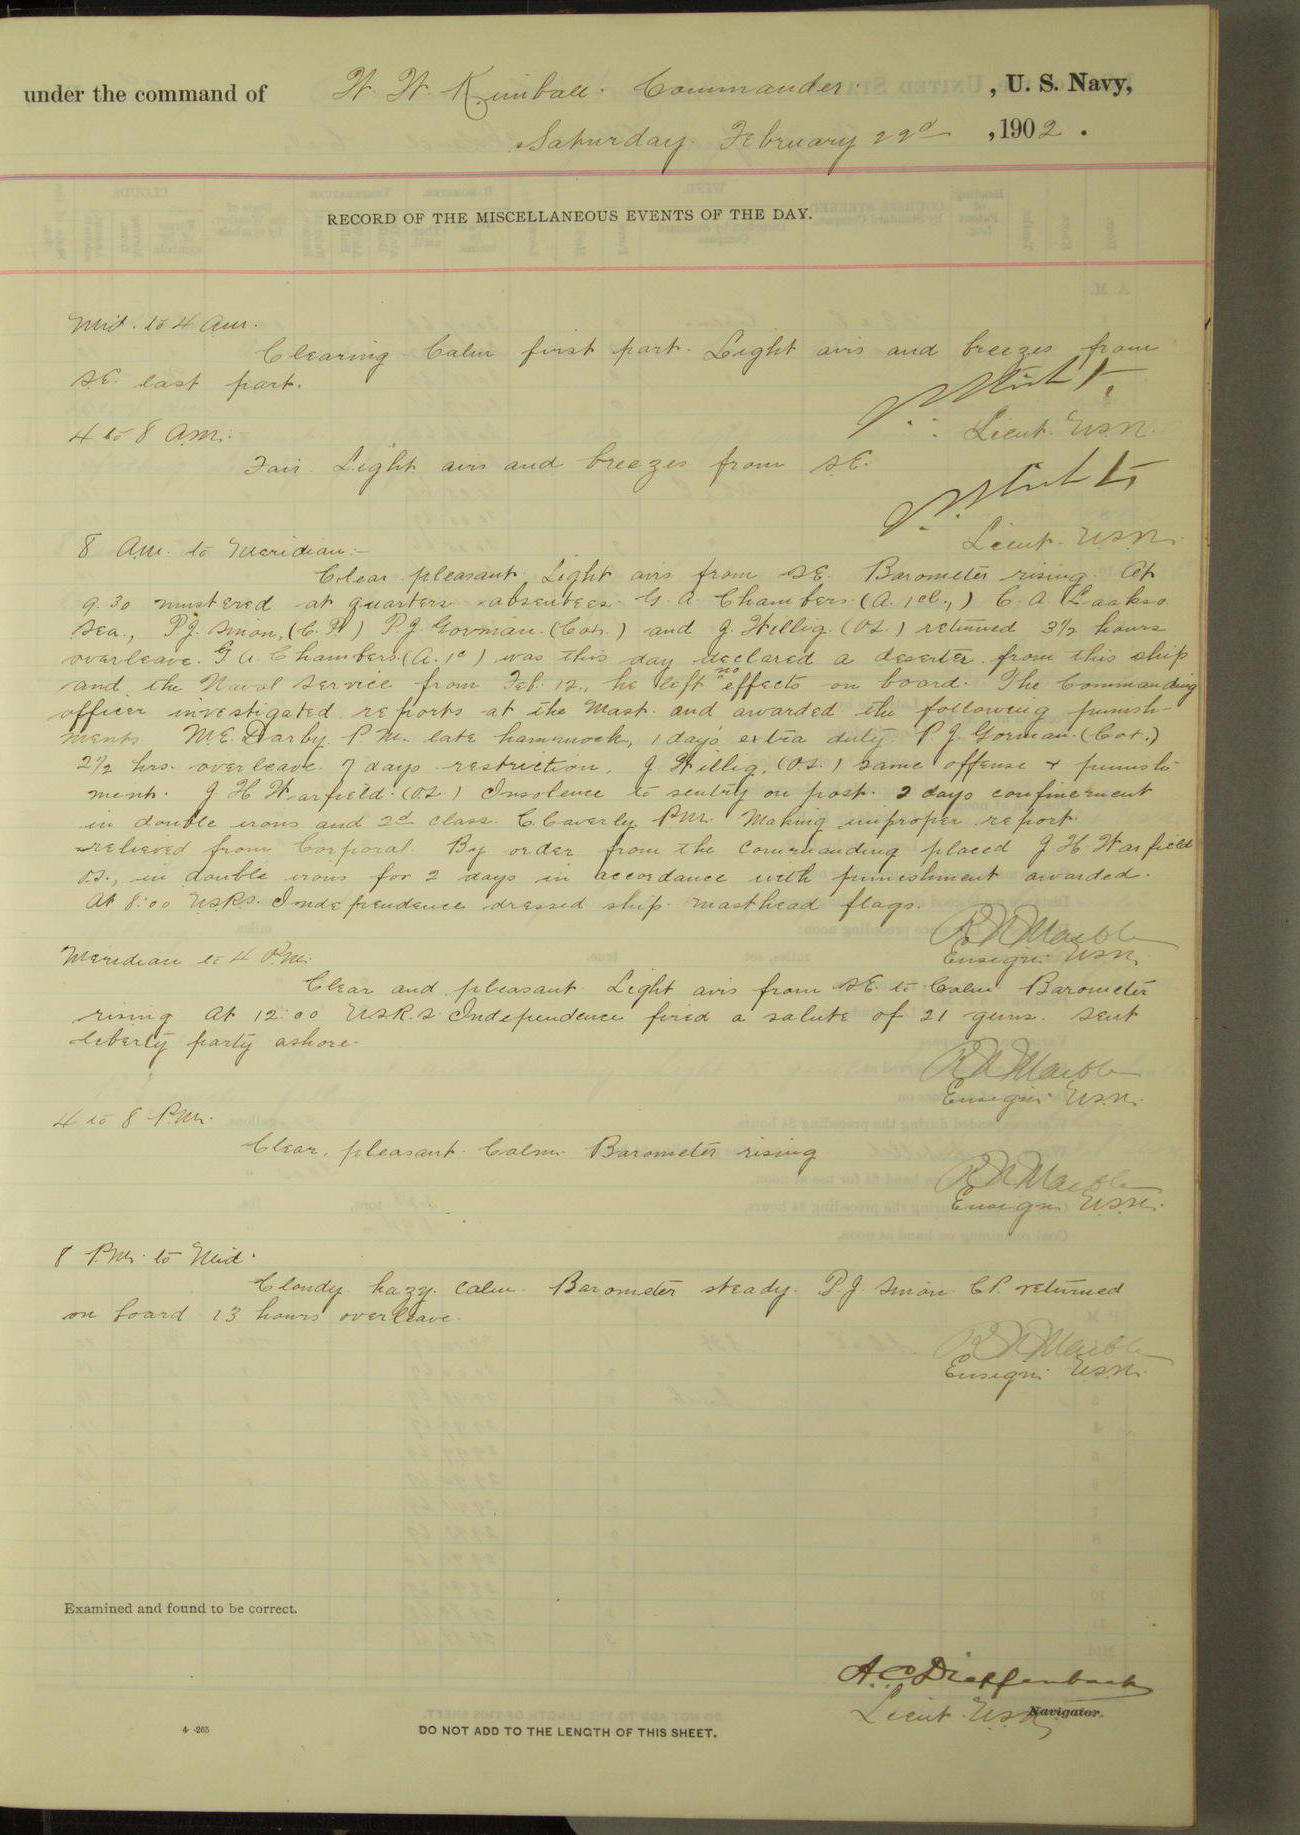 under the command of W. W. Kimball. Commander. , U. S. Navy,
Saturday. February 22d , 1902 .
RECORD OF THE MISCELLANEOUS EVENTS OF THE DAY.
Mid. to 4 A.m.
Clearing. Calm first part. Light airs and breezes from
S.E. last part.
Lieut. U.S.N.
4 to 8 A.M.
Fair. Light airs and breezes from S.E.
Lieut. U.S.N.
8 A.m. to Meridian:-
Clear pleasant. Light airs from S.E. Barometer rising. At
9.30 mustered at quarters absentees G. A. Chambers (A. 1cl.,) C. A. Laakso
Sea., P.J. Simon, (C.P.) P.J. Gorman. (Cox.) and J. Willig. (O.S.) returned 3½ hours
overleave. G A Chambers (A. 1c) was this day declared a deserter from this ship
and the Naval Service from Feb. 12., he left no effects on board. The Commanding
officer investigated reports at the Mast. and awarded the following punish-
ments M.E. Darby. P.M. late hammock, 1 day's extra duty. P J. Gorman. (Cox.)
2½ hrs. overleave. 7 days restriction. J Willig. (O.S.) same offense & punish-
ment. J H Warfield. (O.S.) Insolence to sentry on post. 2 days confinement
in double irons and 2d class. C. Caverly. P.M. Making improper report.
relieved from Corporal. By order from the Commanding placed J H. Warfield
O.S., in double irons for 2 days in accordance with punishment awarded.
At 8:00 U.S.R.S. Independence dressed ship. masthead flags.
Ensign U.S.N.
Meridian to 4 P.M.
Clear and pleasant. Light airs from S.E. to Calm. Barometer
rising At 12:00 U.S.R.S Independence fired a salute of 21 guns. Sent
liberty party ashore.
Ensign U.S.N.
4 to 8 P.M.
Clear, pleasant. Calm. Barometer rising
Ensign U.S.N.
8 P.M. to Mid.
Cloudy. hazy. Calm. Barometer steady. P.J. Simon C.P. returned
on board 13 hours overleave.
Ensign U.S.N.
Examined and found to be correct.
A. C. Dieffenbach
Lieut. U.S.N. Navigator.
4-265
DO NOT ADD TO THE LENGTH OF THIS SHEET.